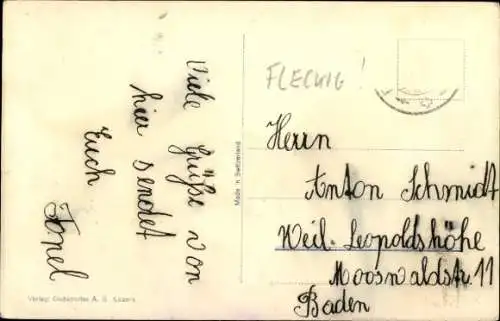 Viele Grüße von
hier sendet
Euch
Made in Switzerland
FLECKIG!
Herrn
Anton Schmidt
Weil-Leopoldshöhe
Mooswaldstr. 11
Baden
Verlag A. G. Luzern